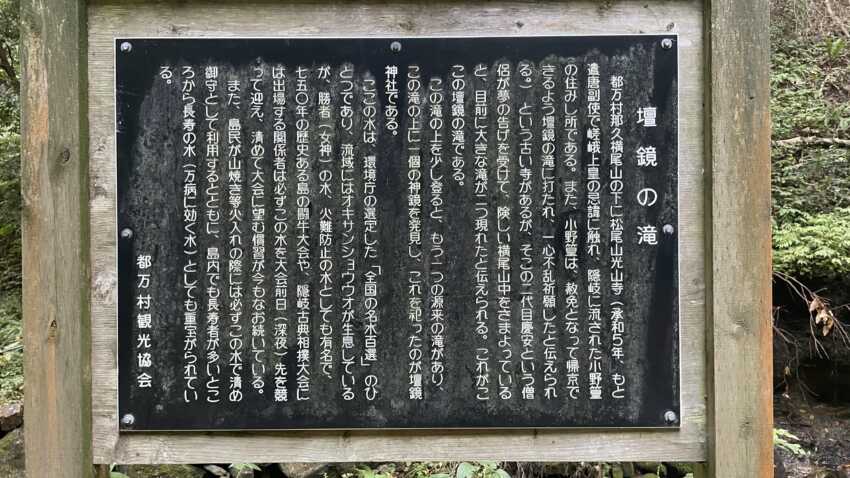 壇鏡の滝
都万村那久横尾山の下に松尾山光山寺（承和５年、もと
遣唐副使で嵯峨上皇の忌諱に触れ、隠岐に流された小野篁
の住みし所である。また、小野篁は、赦免となって帰京で
きるよう壇鏡の滝に打たれ、一心不乱祈願したと伝えられ
る。）という古い寺があるが、そこの二代目慶安という僧
侶が夢の告げを受けて、険しい横尾山中をさまよっている
と、目前に大きな滝が二つ現れたと伝えられる。これがこ
の壇鏡の滝である。
この滝の上を少し登ると、もう一つの源来の滝があり、
この滝の上に一個の神鏡を発見し、これを祀ったのが壇鏡
神社である。
ここの水は、環境庁の選定した「全国の名水百選」のひ
とつであり、流域にはオキサンショウウオが生息している
が、勝者（女神）の水、火難防止の水としても有名で、
七五〇年の歴史ある島の闘牛大会や、隠岐古典相撲大会に
は出場する関係者は必ずこの水を大会前日（深夜）先を競
って迎え、清めて大会に望む慣習が今もなお続いている。
また、島民が山焼き等火入れの際には必ずこの水で清め
御守として利用するとともに、島内でも長寿者が多いとこ
ろから長寿の水（万病に効く水）としても重宝がられてい
る。
都万村観光協会